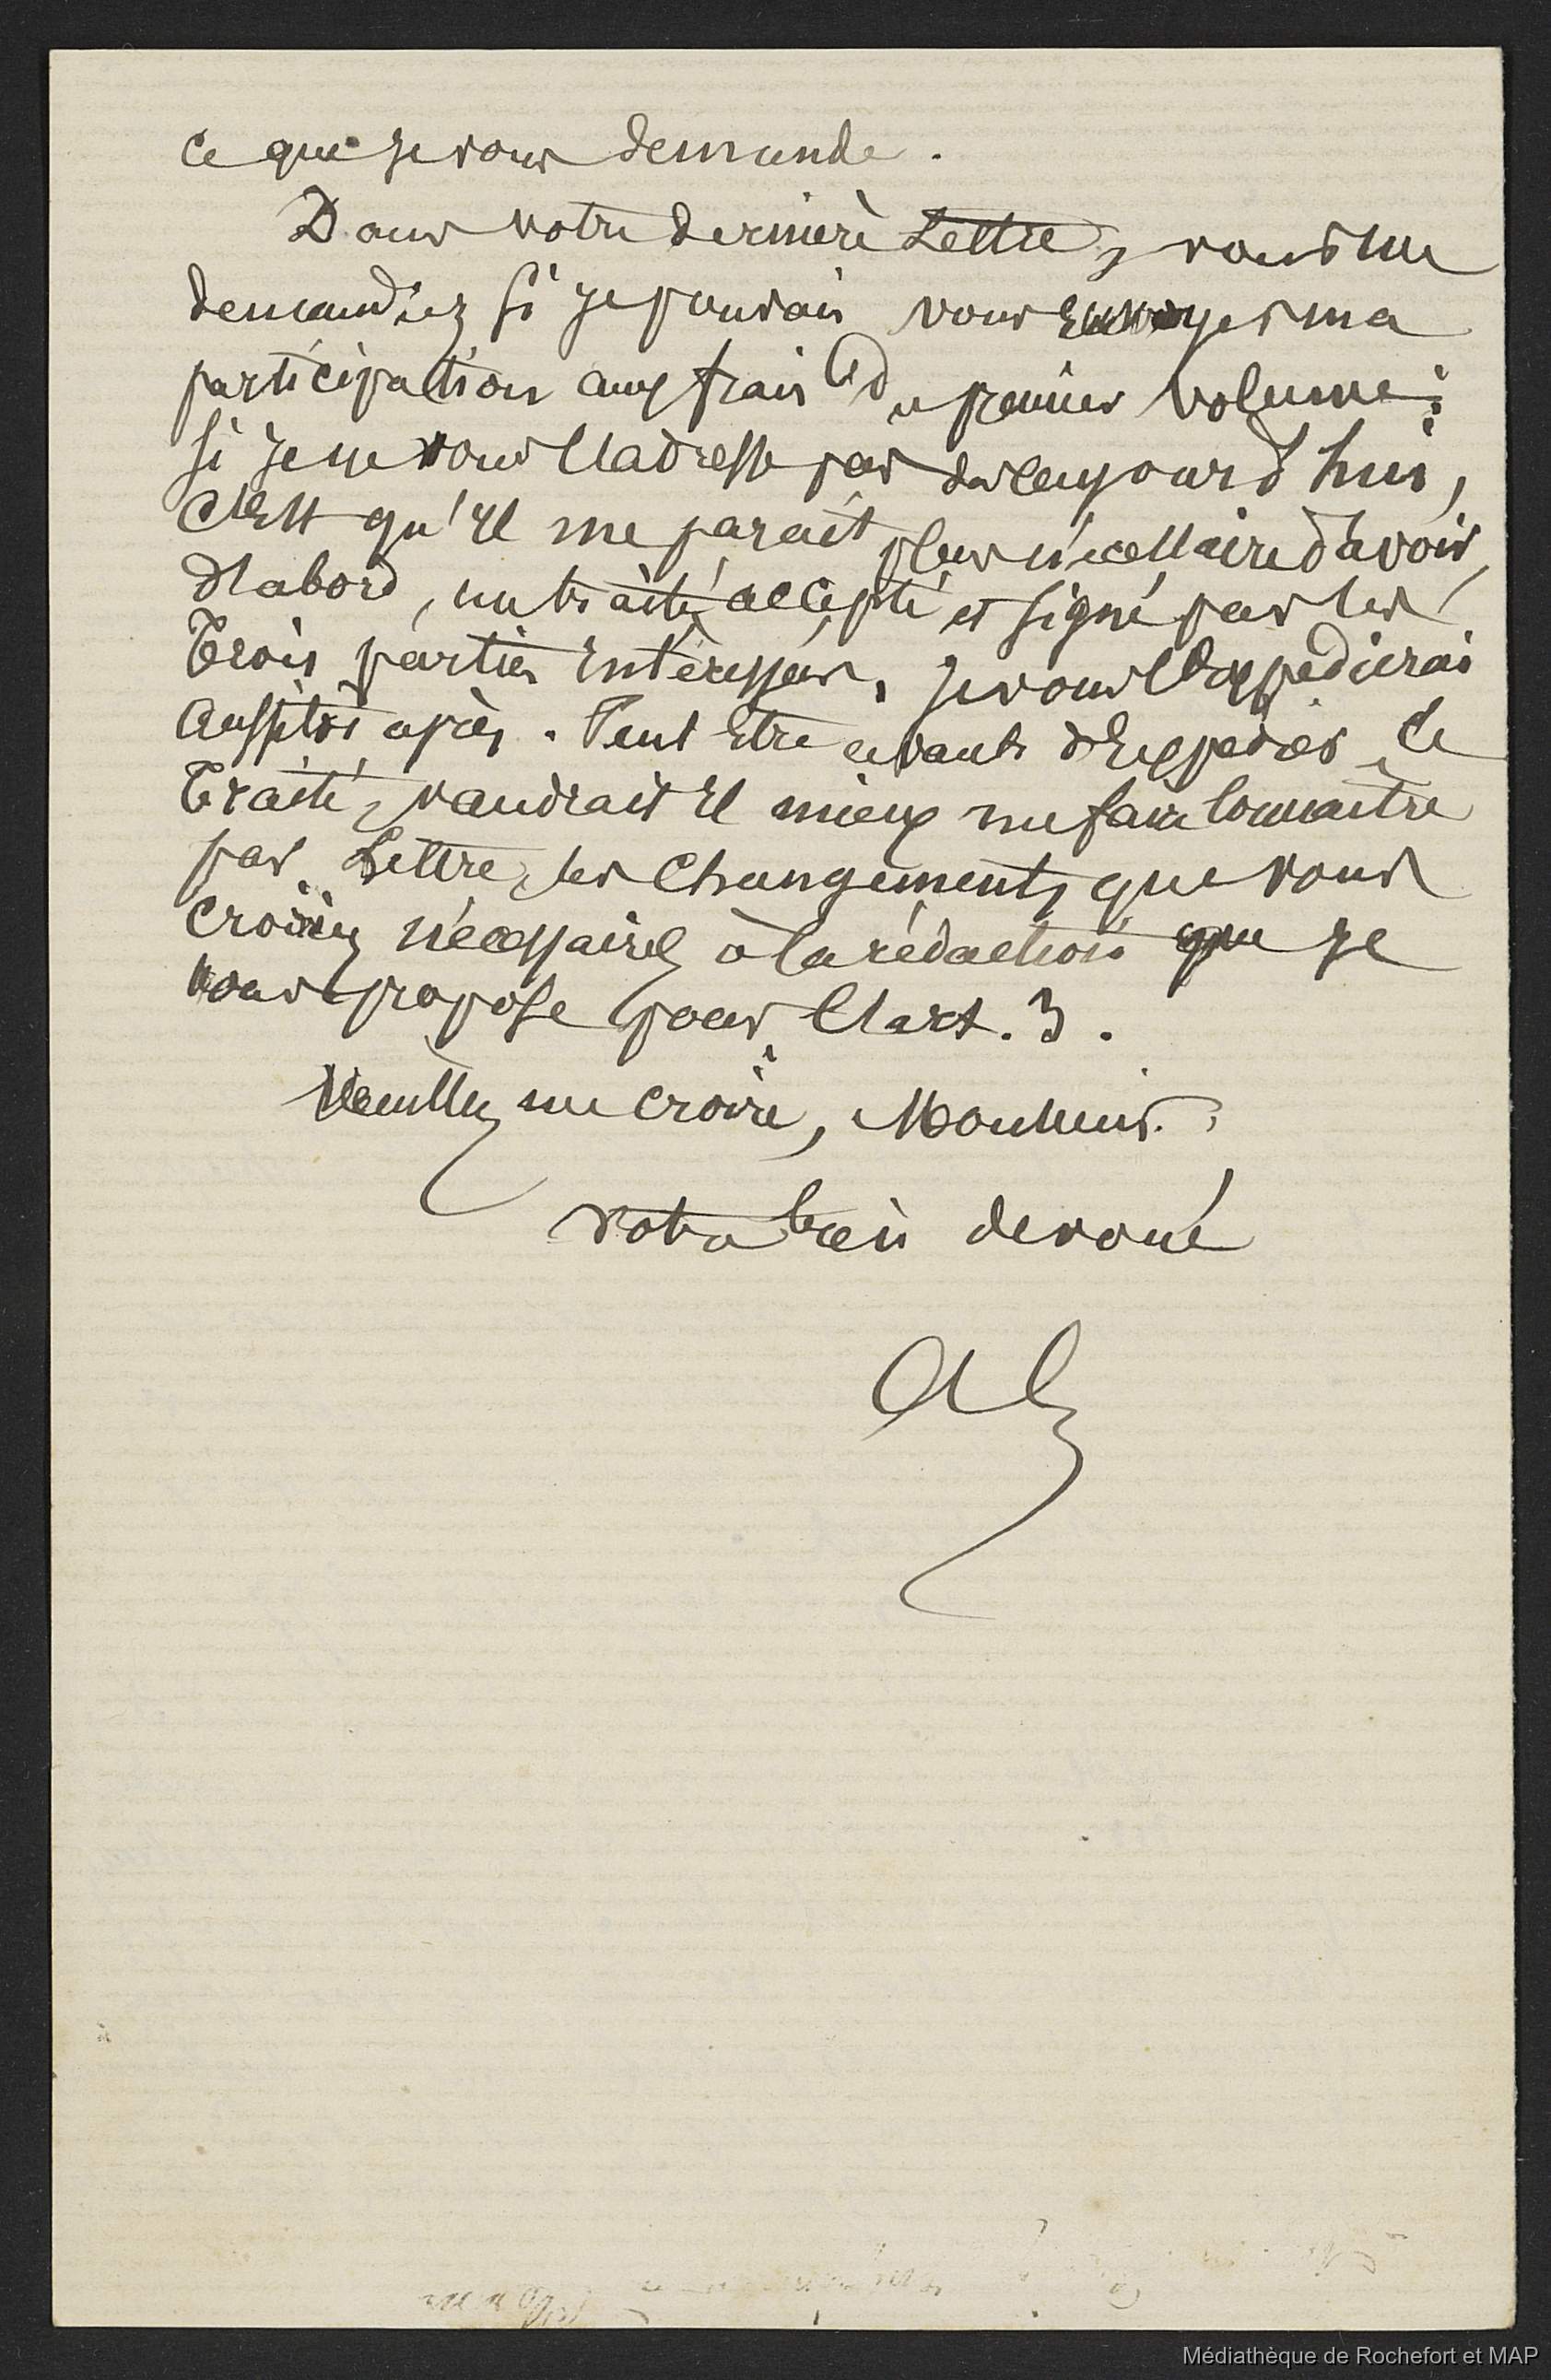 ce que je vous demande.
Dans votre dernière Lettre, vous me
demandiez si je pouvais vous envoyer ma
participation aux frais du premier volume :
si je ne vous l'adresse pas aujourd'hui,
c'est qu'il me parait plus nécessaire d'avoir,
d'abord, un traité, accepté et signé par les
Trois parties intéressées, je vous l'expédierai
aussitôt après. Peut être avant d'expédier ce
Traité, vaudrait il mieux me faire connaitre
par Lettre, les changements que vous
croiriez nécessaires à la rédaction que je
vous propose pour l'art. 3.
Veuillez me croire, Monsieur,
votre très devoué
Médiathèque de Rochefort et MAP